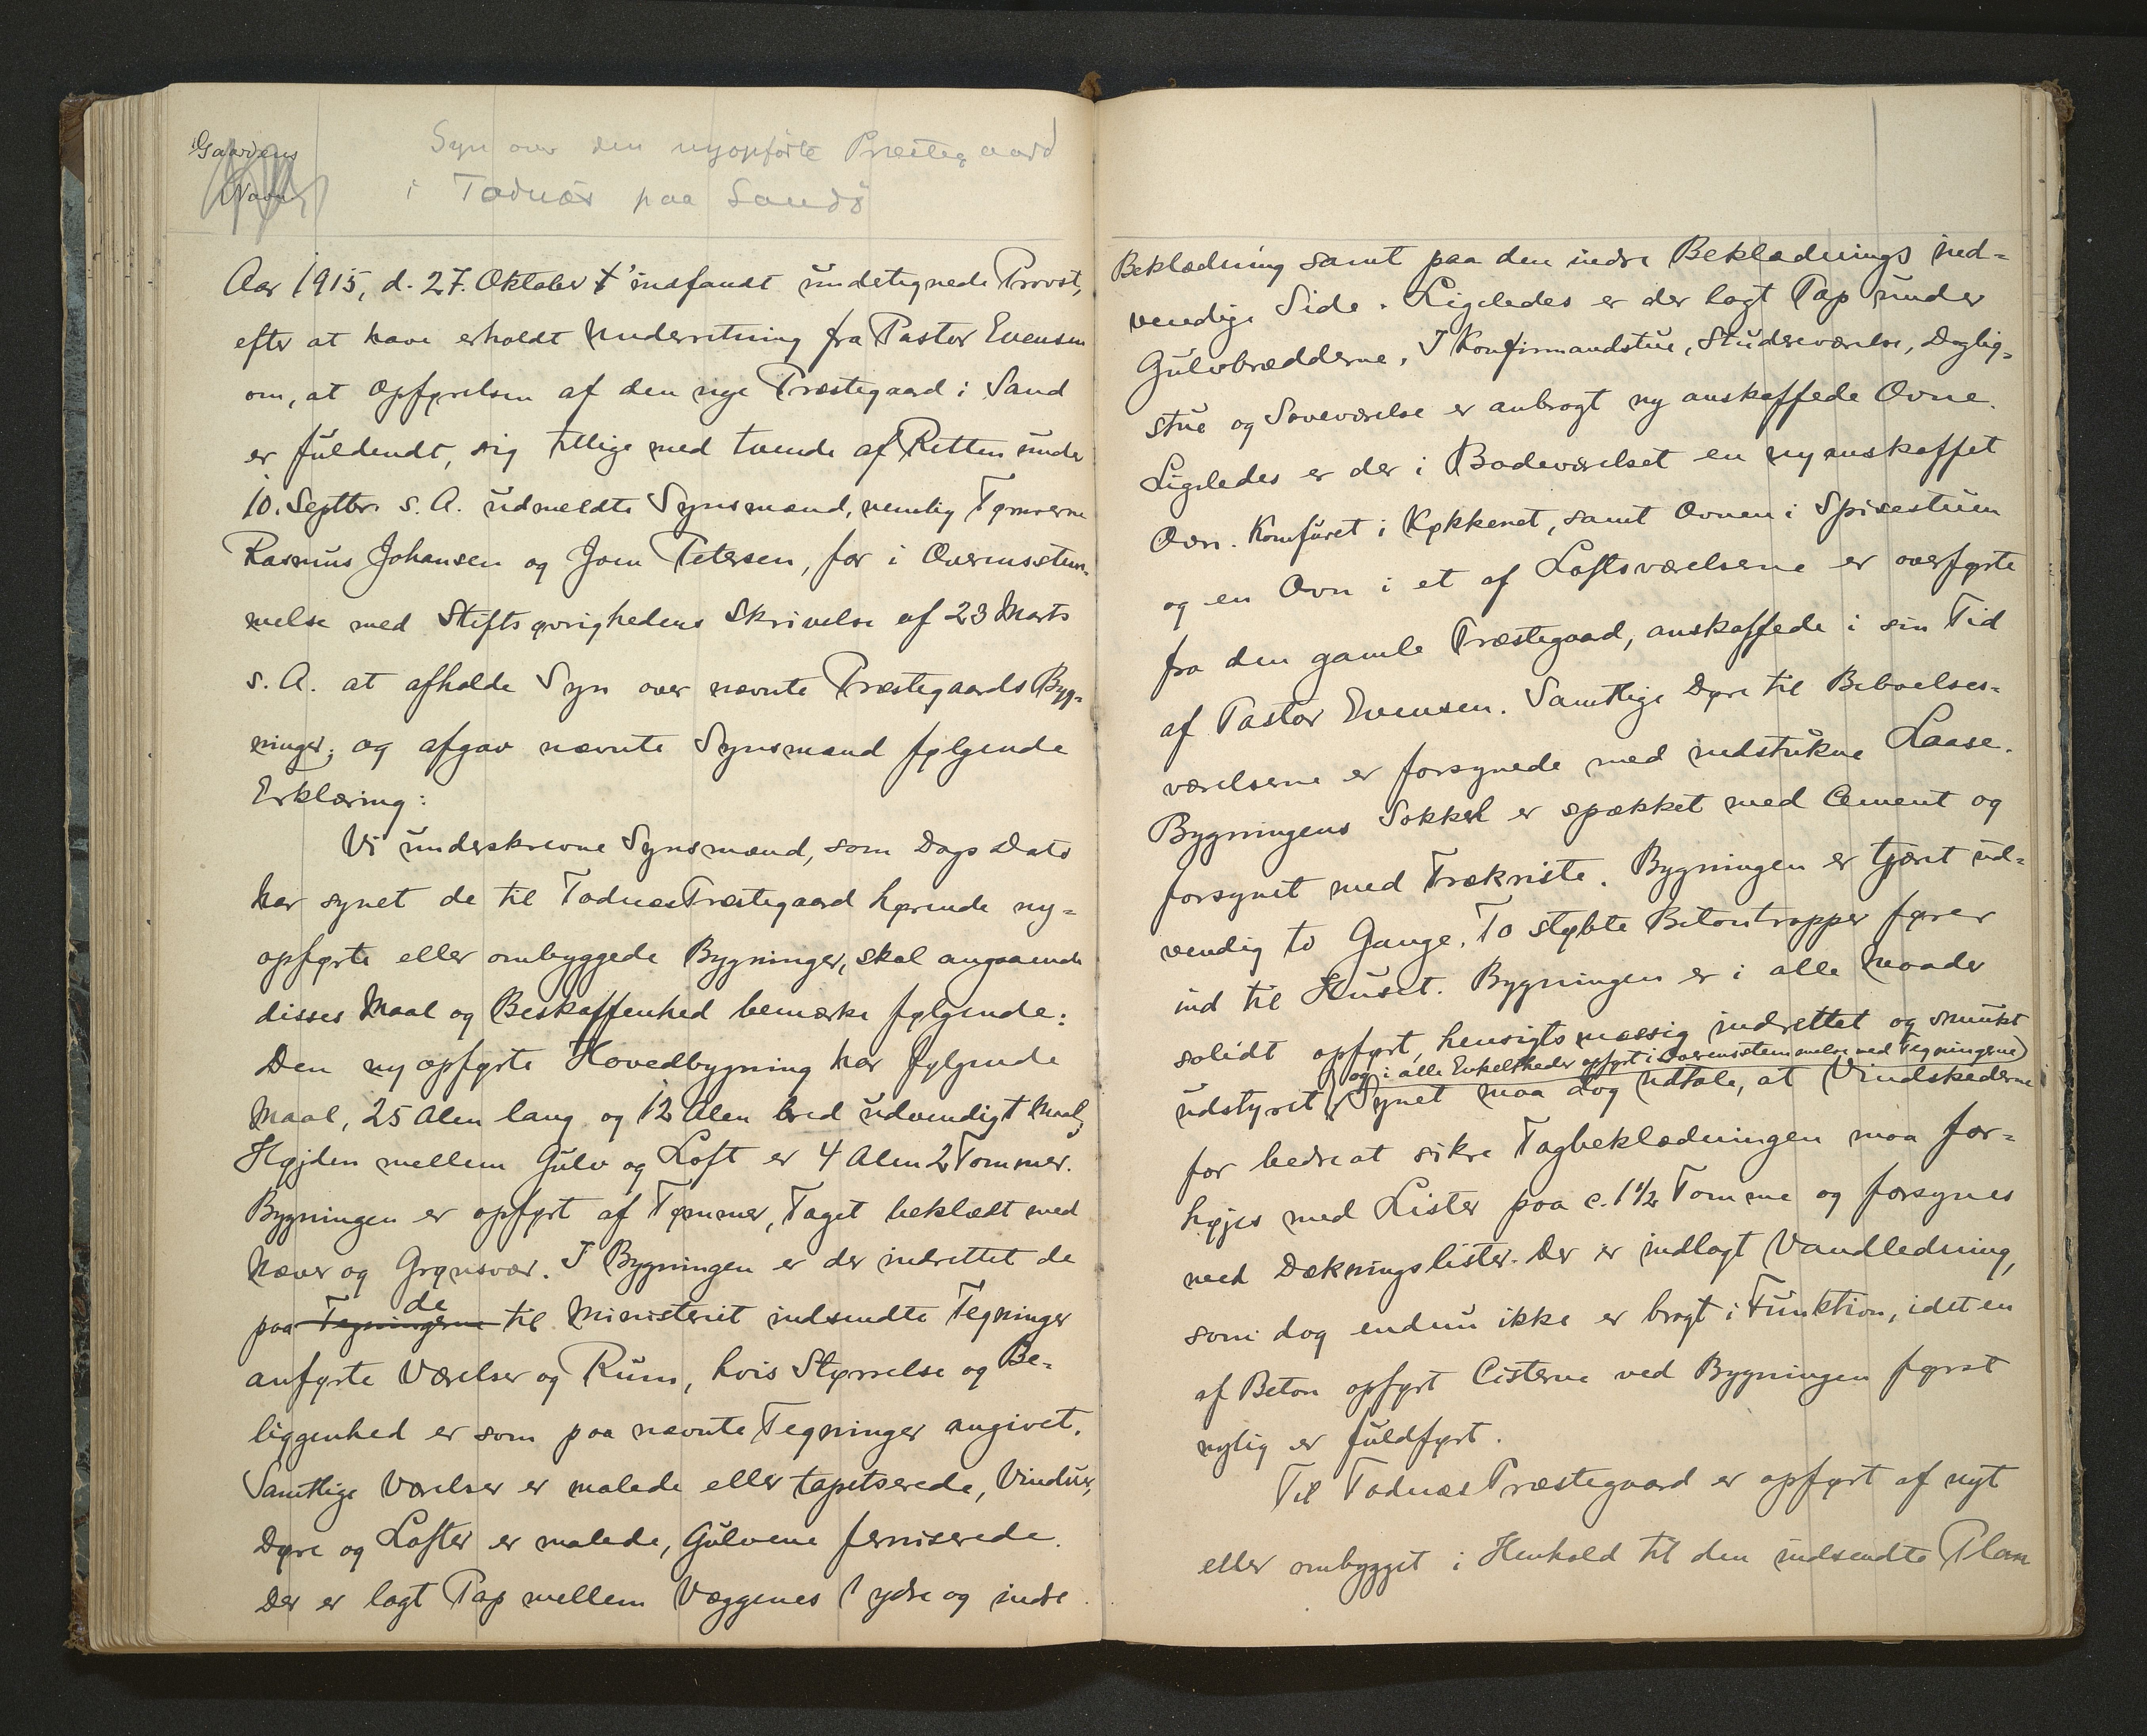 Gaardens
Navn
Syn over den nyopførte Præstegaard
i Todnæs paa Sandø
Aar 1915, d. 27. Oktober indfandt undetegnede Provst,
efter at have erholdt Underretning fra Pastor Evensen
om, at Opførelsen af den nye Præstegaard i Sand
er fuldendt, sig tillige med tvende af Retten under
10. Septbr. s. A. udmeldte Synsmænd, nemlig Tømrerne
Rasmus Johansen og Joen Petersen, for i Overensstem-
melse med Stiftsøvrighedens Skrivelse af 23 Marts
s. A. at afholde Syn over nævnte Præstegaards Byg-
ninger; og afgav nævnte Synsmænd følgende
Erklæring:
Vi underskrevne Synsmænd, som Dags Dato
har synet de til Todnæs Præstegaard hørende ny-
opførte eller ombyggede Bygninger, skal angaaende
disses Maal og Beskaffenhed bemærke følgende:
Den nyopførte Hovedbygning har følgende
Maal, 25 Alen lang og 12 Alen bred udvendigt Maal,
Højden mellem Gulv og Loft er 4 Alen 2 Tommer.
Bygningen er opført af Tømmer, Taget beklædt med
Næver og Grønsvær. I Bygningen er der indrettet de
paa Tegningerne de til Ministeriet indsendte Tegninger
anførte Værelser og Rum, hvis Størrelse og Be-
liggenhed er som paa nævnte Tegninger angivet.
Samtlige Værelser er malede eller tapetserede, Vinduer,
Døre og Lofter er malede, Gulvene ferniserede.
Der er lagt Pap mellem Væggenes ydre og indre
Beklædning samt paa den indre Beklædnings ind-
vendige Side. Ligeledes er der lagt Pap under
Gulvbrædderne. I Konfirmandstue, Studereværelse, Daglig-
stue og Soveværelse er anbragt ny anskaffede Ovne.
Ligeledes er der i Badeværelset en nyanskaffet
Ovn. Komfuret i Køkkenet, samt Ovnen i Spisestuen
og en Ovn i et af Loftsværelserne er overførte
fra den gamle Præstegaard, anskaffede i sin Tid
af Pastor Evensen. Samtlige Døre til Beboelses-
værelserne er forsynede med indstukne Laase.
Bygningens Sokkel er spækket med Cement og
forsynet med Trækriste. Bygningen er tjæret ud-
vendig to Gange. To støbte Betontrapper fører
ind til Huset. Bygningen er i alle Maader
solidt opført, hensigtsmæssig indrettet og smukt
og i alle Enkeltheder opført i Overensstemmelse med Tegningerne)
udstyret. Synet maa dog udtale, at Vindskederne
for bedre at sikre Tagbeklædningen maa for-
højes med Lister paa c. 1 1/2 Tomme og forsynes
med Dækningslister. Der er indlagt Vandledning,
som dog endnu ikke er bragt i Funktion, idet en
af Beton opført Cisterne ved Bygningen først
nylig er fuldført.
Til Todnæs Præstegaard er opført af nyt
eller ombygget i Henhold til den indsendte Plan